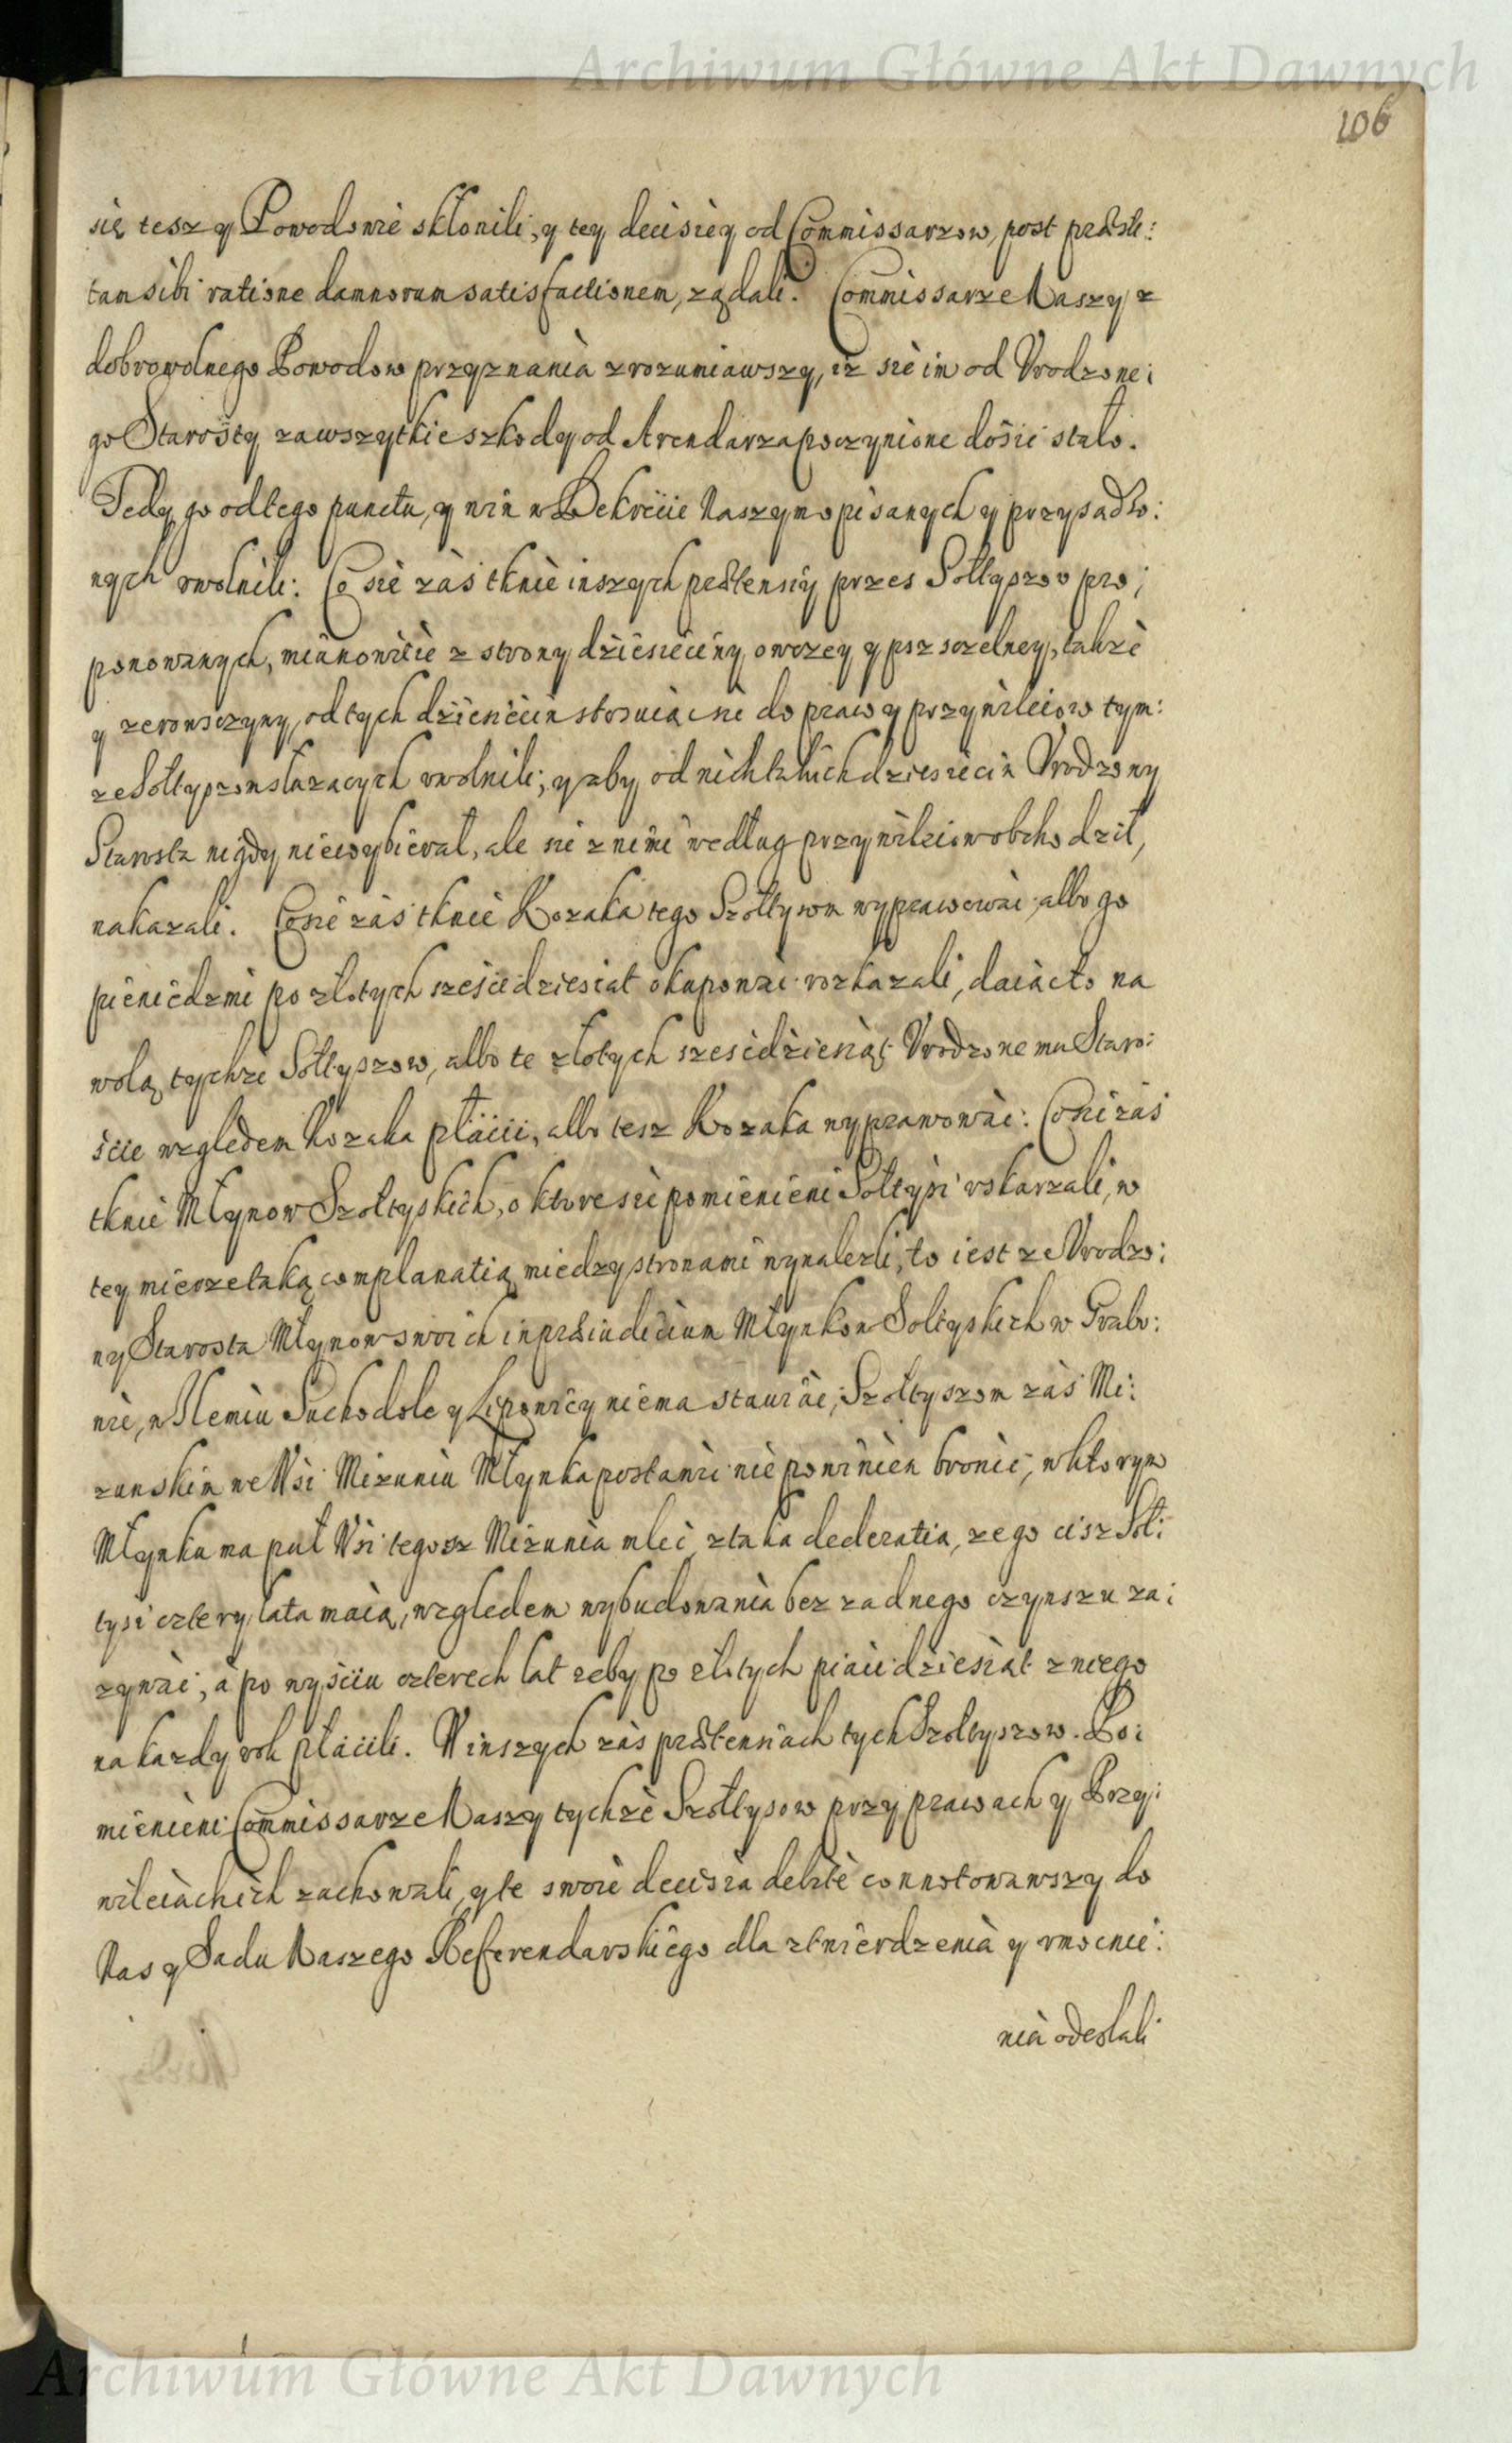 Archiwum Główne Akt Dawnych
106
się tesz y Powodowie skłonili, y tey decisiey od Commissarzow, post præsti:
tam sibi ratione damnorum satisfactionem, ządali. Commissarze Naszy z
dobrowolnego Powodow przyznania zrozumiawszy, iz sie im od Vrodzone:
go Starosty za wszytkie szkody od Arendarza poczynione dosić stało.
Tedy go od tego punctu, y win w Dekrecie Naszym opisanych y przysądzo:
nych vwolnili: Co sie zas tknie inszych prætensiy przez Sołtyszow pro:
ponowanych, mianowicie z strony dziesieciny owczey y pszczelney, takze
y zerowszczyny, od tych dziesiecin stosuiąc sie do praw y przywileiow tym:
ze Sołtyszom słuzacych vwolnili; y aby od nich takich dziesiecin Vrodzony
Starosta nigdy niewybierał, ale sie z nimi według przywileiow obchodził,
nakazali. Co sie zas tknie Kozaka tego Szołtysom wyprawować albo go
pieniedzmi po złotych sześcdziesiat okupować rozkazali, daiąc to na
wolą tychze Sołtyszow, albo te złotych szescdziesiąt Vrodzonemu Staro:
ście względem Kozaka płacić, albo tesz Kozaka wyprawować: Co sie zas
tknie Młynow Szołtyskich, o ktore sie pomienieni Sołtysi vskarzali, w
tey mierze taką complanatią miedzy stronami wynalezli, to iest ze Vrodzo:
ny Starosta Młynow swoich in præiudicium Młynkow Sołtyskich w Grabo:
wie, w Ilemiu Suchodole y Lipowicy niema stawiać, Szołtyszom zas Mi:
zunskim we Wsi Mizuniu Młynka postawić nie powinien bronić, w ktorym
Młynku ma puł Wsi tegosz Mizunia mleć, z taka declaratia, ze go cisz Soł:
tysi cztery lata maią, względem wybudowania bez zadnego czynszu za:
zywać, a po wyściu czterech lat zeby po złotych piaćdziesiat z niego
na kazdy rok płacili. W inszych zas prætensiach tych Szołtyszow. Po:
mienieni Commissarze Naszy tychze Szołtysow przy prawach y Przy:
wileiach ich zachowali, y te swoie decisia debite connotowawszy do
Nas y Sadu Naszego Referendarskiego dla ztwierdzenia y vmocnie:
nia odesłali
Archiwum Główne Akt Dawnych